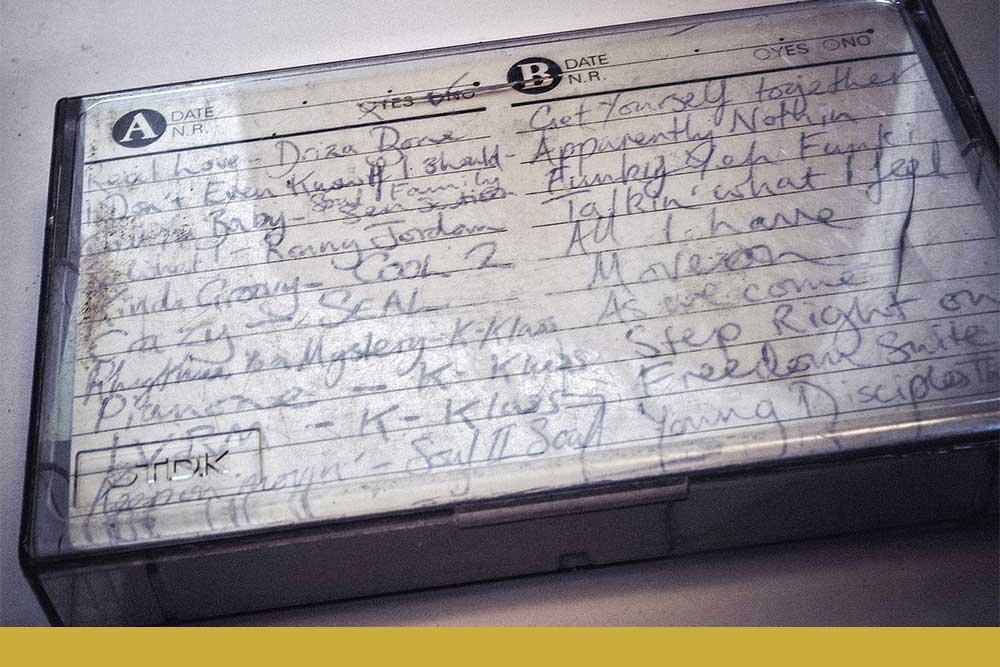 A DATE
N.R. YES NO
Real Love - Driza Bone
I Don't Even Know If I Should -
Baby - Soul Family
Sensation
what! - Ronny Jordan
Kinda Groovy - Cool 2
Crazy - SEAL
Rhythm is a Mystery - K-Klass
- K-Klass
- K-Klass
Keep on movin' - Soul II Soul
TDK
B DATE
N.R. YES NO
Get Yourself together
Apparently Nothin
Funky Yeh Funki
Talkin what I feel
All I have
Move on
As we come
Step Right on
Freedom Suite
Young Disciples